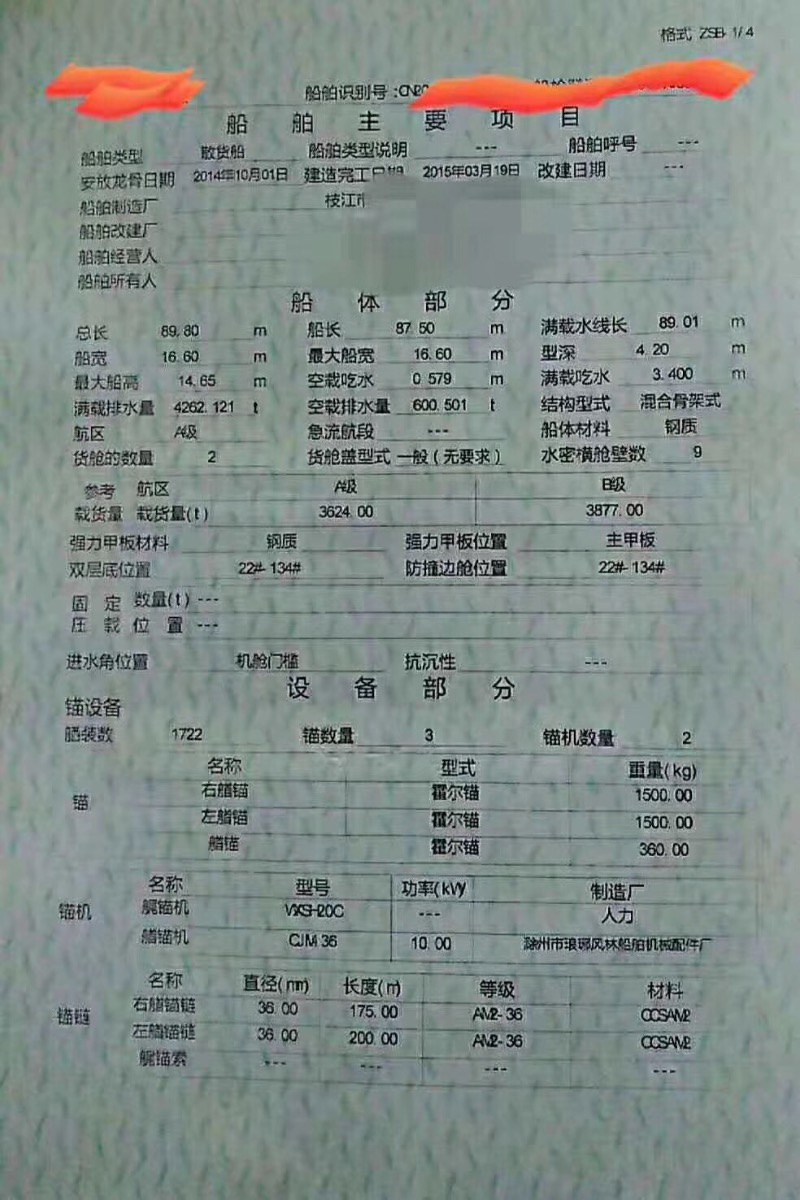 格式 ZSB-1/4
船舶识别号:CN20
船舶主要项目
船舶类型 散货船 船舶类型说明 --- 船舶呼号 ---
安放龙骨日期 2014年10月01日 建造完工日期 2015年03月19日 改建日期 ---
船舶制造厂 枝江市
船舶改建厂
船舶经营人
船舶所有人
船体部分
总长 89.80 m 船长 87.50 m 满载水线长 89.01 m
船宽 16.60 m 最大船宽 16.60 m 型深 4.20 m
最大船高 14.65 m 空载吃水 0.579 m 满载吃水 3.400 m
满载排水量 4262.121 t 空载排水量 600.501 t 结构型式 混合骨架式
航区 A级 急流航段 --- 船体材料 钢质
货舱的数量 2 货舱盖型式 一般(无要求) 水密横舱壁数 9
参考 航区 A级 B级
载货量 载货量(t) 3624.00 3877.00
强力甲板材料 钢质 强力甲板位置 主甲板
双层底位置 22#-134# 防撞边舱位置 22#-134#
固定 数量(t) ---
压载 位置 ---
进水角位置 机舱门槛 抗沉性 ---
设备部分
锚设备
舾装数 1722 锚数量 3 锚机数量 2
名称 型式 重量(kg)
锚 右艏锚 霍尔锚 1500.00
左艏锚 霍尔锚 1500.00
艄锚 霍尔锚 360.00
名称 型号 功率(kW) 制造厂
锚机 艉锚机 VXSH-20C --- 人力
艏锚机 CJM36 10.00 滁州市琅琊风林船舶机械配件厂
名称 直径(mm) 长度(m) 等级 材料
锚链 右艏锚链 36.00 175.00 AM2-36 CCSAM2
左艏锚链 36.00 200.00 AM2-36 CCSAM2
艉锚索 --- --- --- ---